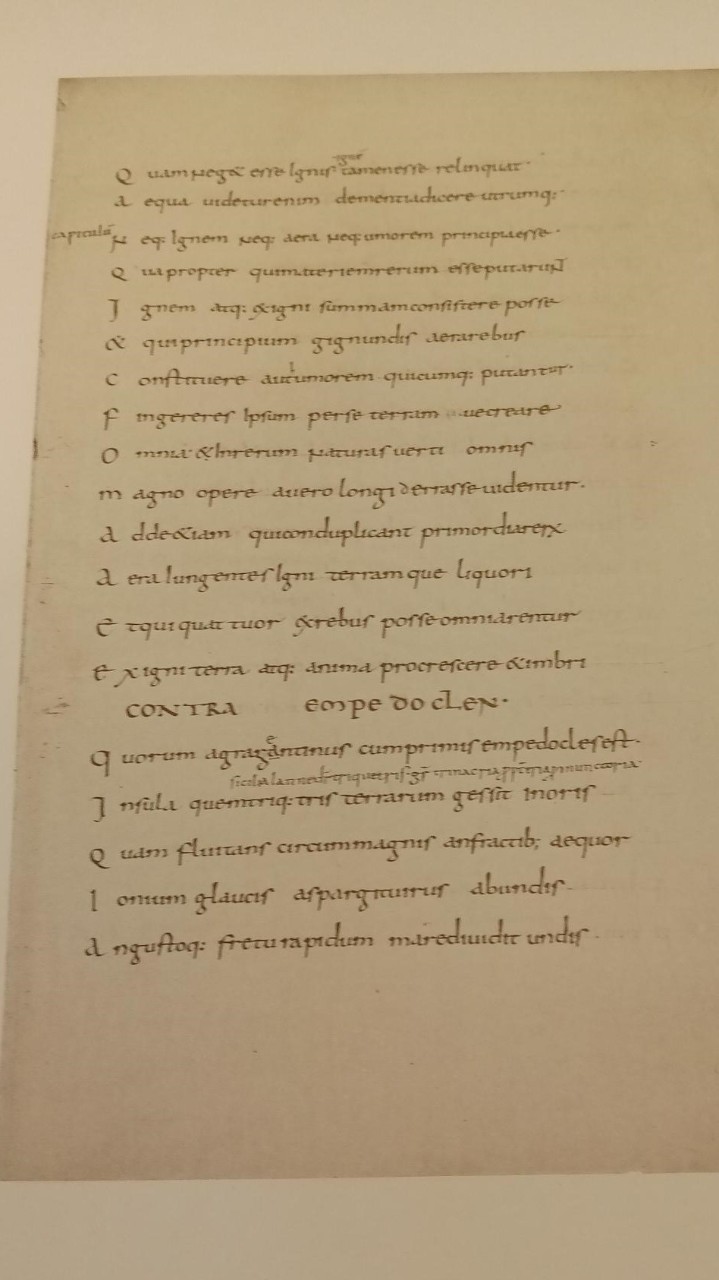 Q uam neg& esse Ignis tamen esse relinquat·
igne
A equa uidetur enim dementia dicere utrumq:·
capitulū
N eq: Ignem neq: aera neq: umorem principia esse·
Q uapropter qui materiem rerum esse putarunt
I gnem atq: & igni summam consistere posse
& qui principium gignundis aera rebus
C onstituere aut umorem quicumq: putantur·
F ingere res Ipsum per se terram ue creare
O mnia & In rerum naturas uerti omnis
m agno opere a uero longi derrasse uidentur·
A dde &iam qui conduplicant primordia rerx
A era Iungentes Igni terram que liquori
E t qui quattuor &rebus posse omnia rentur
E x igni terra atq: anima procrescere & imbri
CONTRA EMPEDOCLEN·
Q uorum agragantinus cum primis empedocles est·
I nsula quem triq:tris terrarum gessit In oris
Q uam fluitans circum magnis anfractib; aequor
I onium glaucis aspargit uirus ab undis
A ngustoq: fretu rapidum mare diuidit undis·